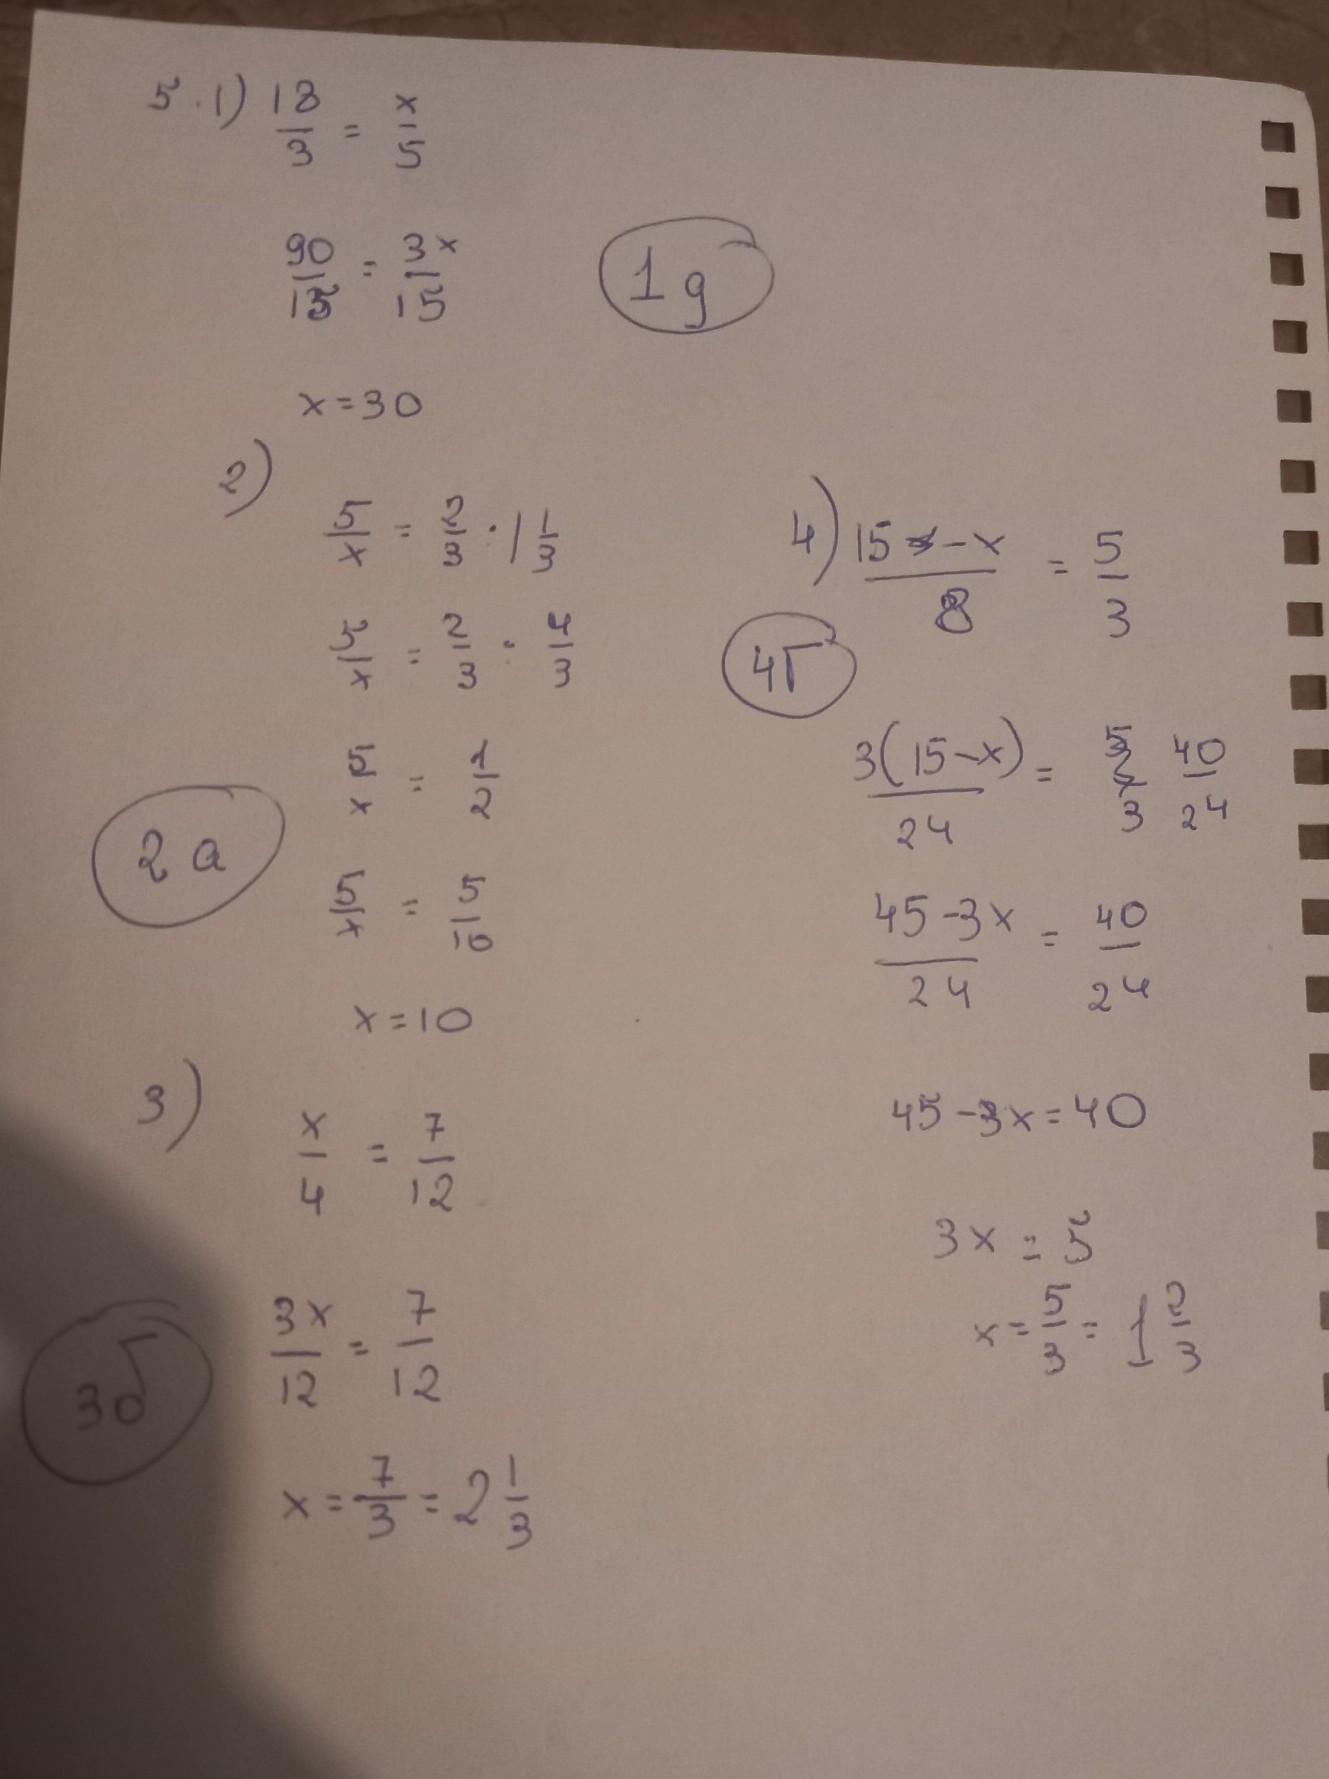 5.1) 18/3 = x/5
90/15 = 3x/15
1g
x = 30
2)
5/x = 2/3 : 1 1/3
5/x = 2/3 : 4/3
5/x = 1/2
2a
5/x = 5/10
x = 10
3)
x/4 = 7/12
3x/12 = 7/12
3б
x = 7/3 = 2 1/3
4) (15 - x)/8 = 5/3
4г
3(15-x)/24 = 40/24
(45-3x)/24 = 40/24
45-3x = 40
3x = 5
x = 5/3 = 1 2/3